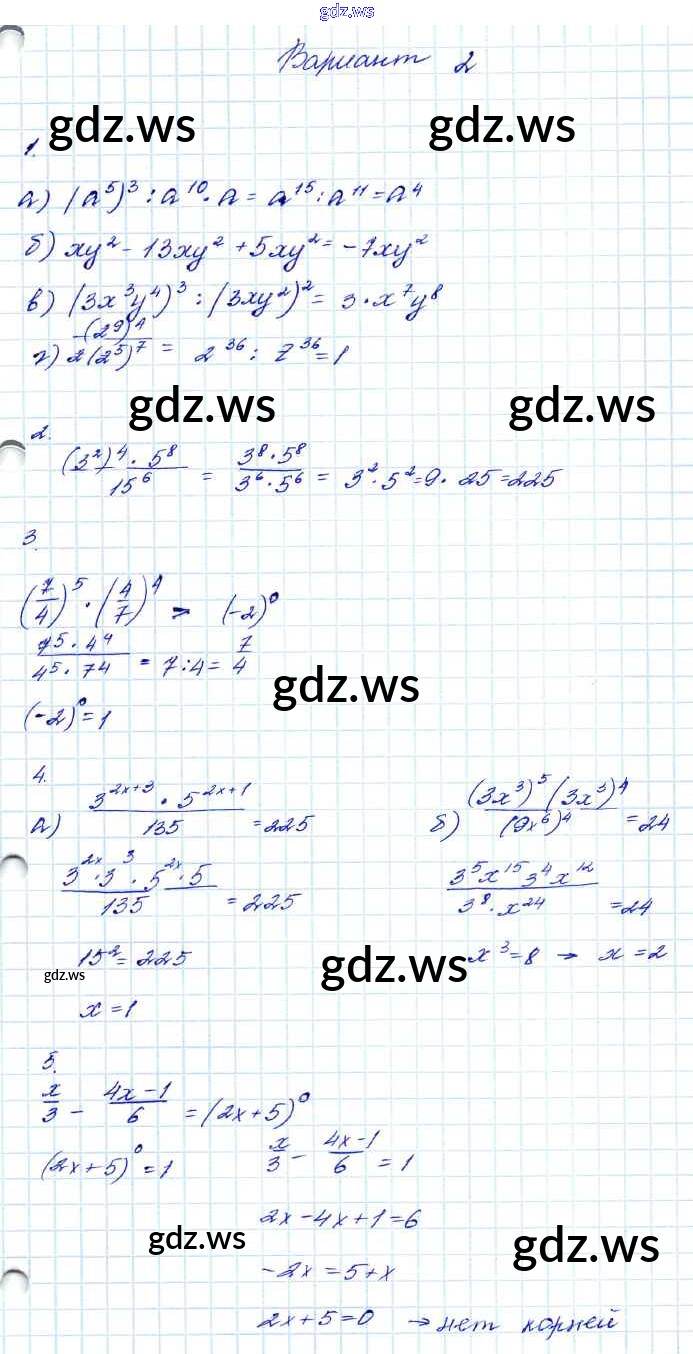 gdz.ws
Вариант 2
gdz.ws gdz.ws
1.
а) (a⁵)³ : a¹⁰ · a = a¹⁵ : a¹¹ = a⁴
б) xy² - 13xy² + 5xy² = -7xy²
в) (3x³y⁴)³ : (3xy²)² = 3 · x⁷y⁸
г) (2⁹)⁴ / 2(2⁵)⁷ = 2³⁶ : 2³⁶ = 1
gdz.ws gdz.ws
2.
(3²)⁴ · 5⁸ / 15⁶ = 3⁸ · 5⁸ / 3⁶ · 5⁶ = 3² · 5² = 9 · 25 = 225
3.
(7/4)⁵ · (4/7)⁴ > (-2)⁰
7⁵ · 4⁴ / 4⁵ · 7⁴ = 7 : 4 = 7/4
gdz.ws
(-2)⁰ = 1
4.
а) 3²ˣ⁺³ · 5²ˣ⁺¹ / 135 = 225
3²ˣ · 3³ · 5²ˣ · 5 / 135 = 225
15² = 225
x = 1
б) (3x³)⁵(3x³)⁴ / (9x⁶)⁴ = 24
3⁵x¹⁵3⁴x¹² / 3⁸ · x²⁴ = 24
x³ = 8 → x = 2
gdz.ws gdz.ws
5.
x/3 - 4x-1/6 = (2x+5)⁰
(2x+5)⁰ = 1
x/3 - 4x-1/6 = 1
2x - 4x + 1 = 6
gdz.ws gdz.ws
-2x = 5 + x
2x + 5 = 0 → нет корней